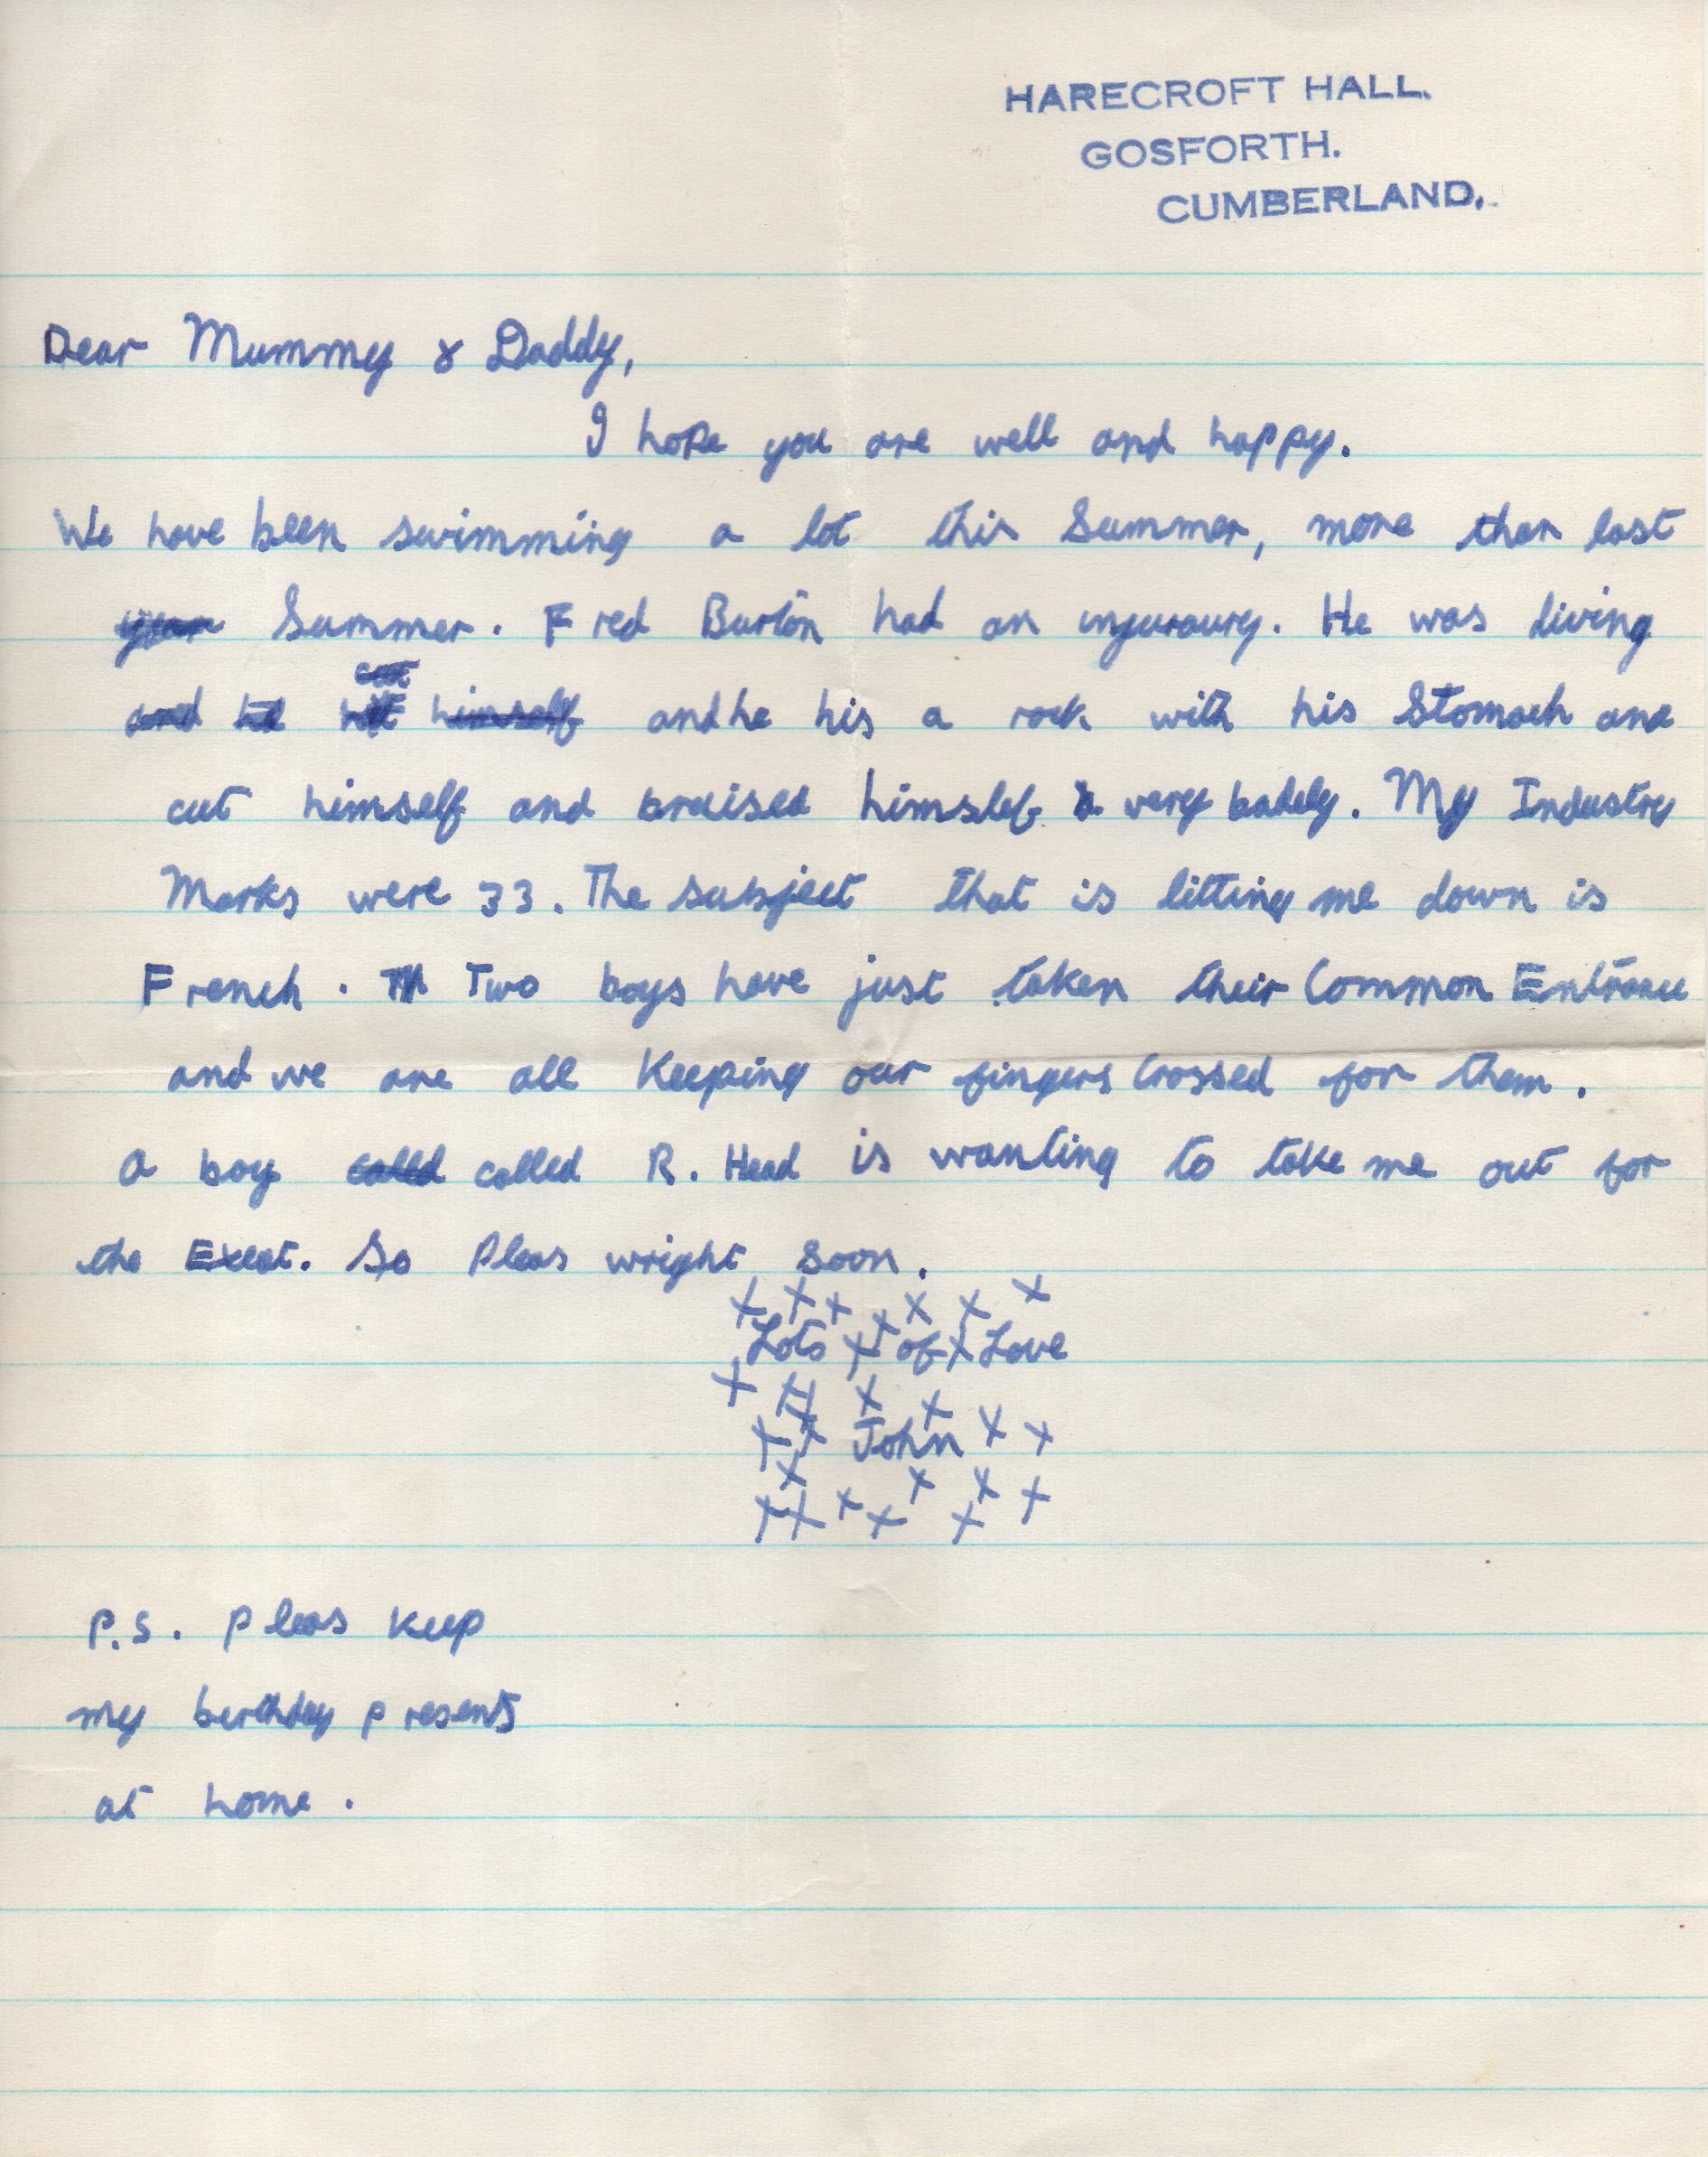 HARECROFT HALL.
GOSFORTH.
CUMBERLAND.
Dear Mummy & Daddy,
I hope you are well and happy.
We have been swimming a lot this Summer, more than last
year Summer. Fred Burton had an injuraury. He was diving
cut
and he hit himself and he his a rock with his Stomach and
cut himself and bruised himslef & very badely. My Industry
Marks were 33. The subject that is litting me down is
French. Th Two boys have just taken their Common Entrance
and we are all Keeping our fingers Crossed for them.
A boy called called R. Head is wanting to take me out for
the Exeat. So Pleas wright soon.
x x x x x x x
Lots x of x Love
x x x x x
x x John x x
x x x x
x x x x x
P.S. Pleas Keep
my birthday presents
at home.